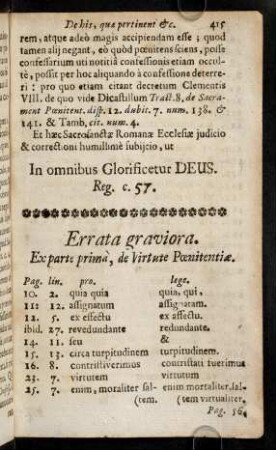 De his, quæ pertinent &c. 415
rem, atque adeò magis accipiendam esse ; quod
tamen alij negant, eò quòd pœnitens sciens, posse
confessarium uti notitiâ confessionis etiam occul-
tè, possit per hoc aliquando à confessione deterre-
ri : pro quo etiam citant decretum Clementis
VIII. de quo vide Dicastillum Tract.8. de Sacra-
ment Pœnitent. disp. 12. dubit. 7. num. 138. &
141. & Tamb. cit. num. 4.
Et hæc Sacrosanctæ Romanæ Ecclesiæ judicio
& correctioni humillimè subijcio, ut
In omnibus Glorificetur DEUS.
Reg. c. 57.
Errata graviora.
Ex parte primâ, de Virtute Pœnitentiæ.
Pag. lin. pro. lege.
10. 2. quia quia quia, qui,
11. 12. assignatum assignatam.
12. 5. ex effectu ex affectu.
ibid. 27. revedundante redundante.
14. 11. seu &
15. 13. circa turpitudinem turpitudinem.
16. 8. contristiverimus contristati fuerimus
23. 7. virtutem virtutum
25. 7. enim, moraliter sal- enim moraliter.sal-
(tem. (tem virtualiter.
Pag. 36.